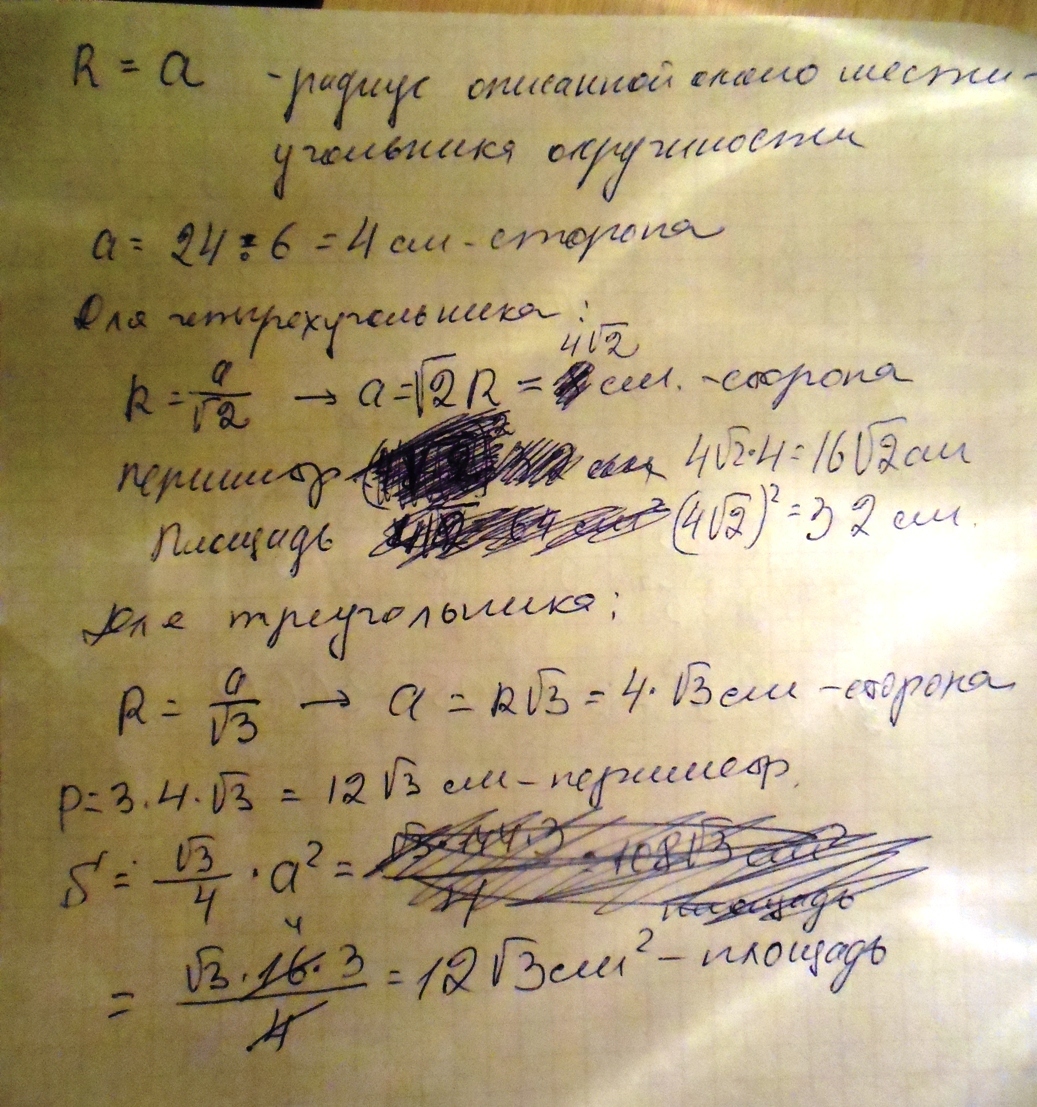 R = a - радиус описанной около шести-
угольника окружности
a = 24 : 6 = 4 см - сторона
Для четырехугольника:
R = a/√2 → a = √2 R = 4√2 см. - сторона
периметр 4√2·4 = 16√2 см
Площадь (4√2)² = 32 см.
Для треугольника:
R = a/√3 → a = R√3 = 4·√3 см - сторона
P = 3·4·√3 = 12√3 см - периметр.
S = √3/4 · a² =
= √3·16·3/4 = 12√3 см² - площадь